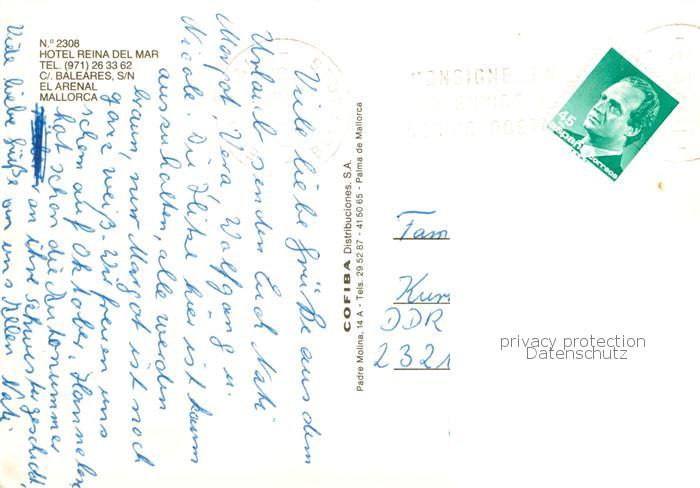 N.º 2308
HOTEL REINA DEL MAR
TEL. (971) 26 33 62
C/. BALEARES, S/N
EL ARENAL
MALLORCA
Viele liebe Grüße aus dem
Urlaub senden Euch Nati
Margot, Vera, Wolfgang u.
Nicole. Die Hitze hier ist kaum
auszuhalten alle werden
braun, nur Margot ist noch
ganz weiß. Wir freuen uns
schon auf Oktober. Hannelore
hat schon die Autonummer
an ihre Schwester geschickt
Viele liebe Grüße von uns Allen Nati
COFIBA Distribuciones, S.A.
Padre Molina, 14 A - Tels. 29 52 87 - 41 50 65 - Palma de Mallorca
CONSIGNE
POST
45
españa
correos
Fam
DDR
2321
privacy protection
Datenschutz